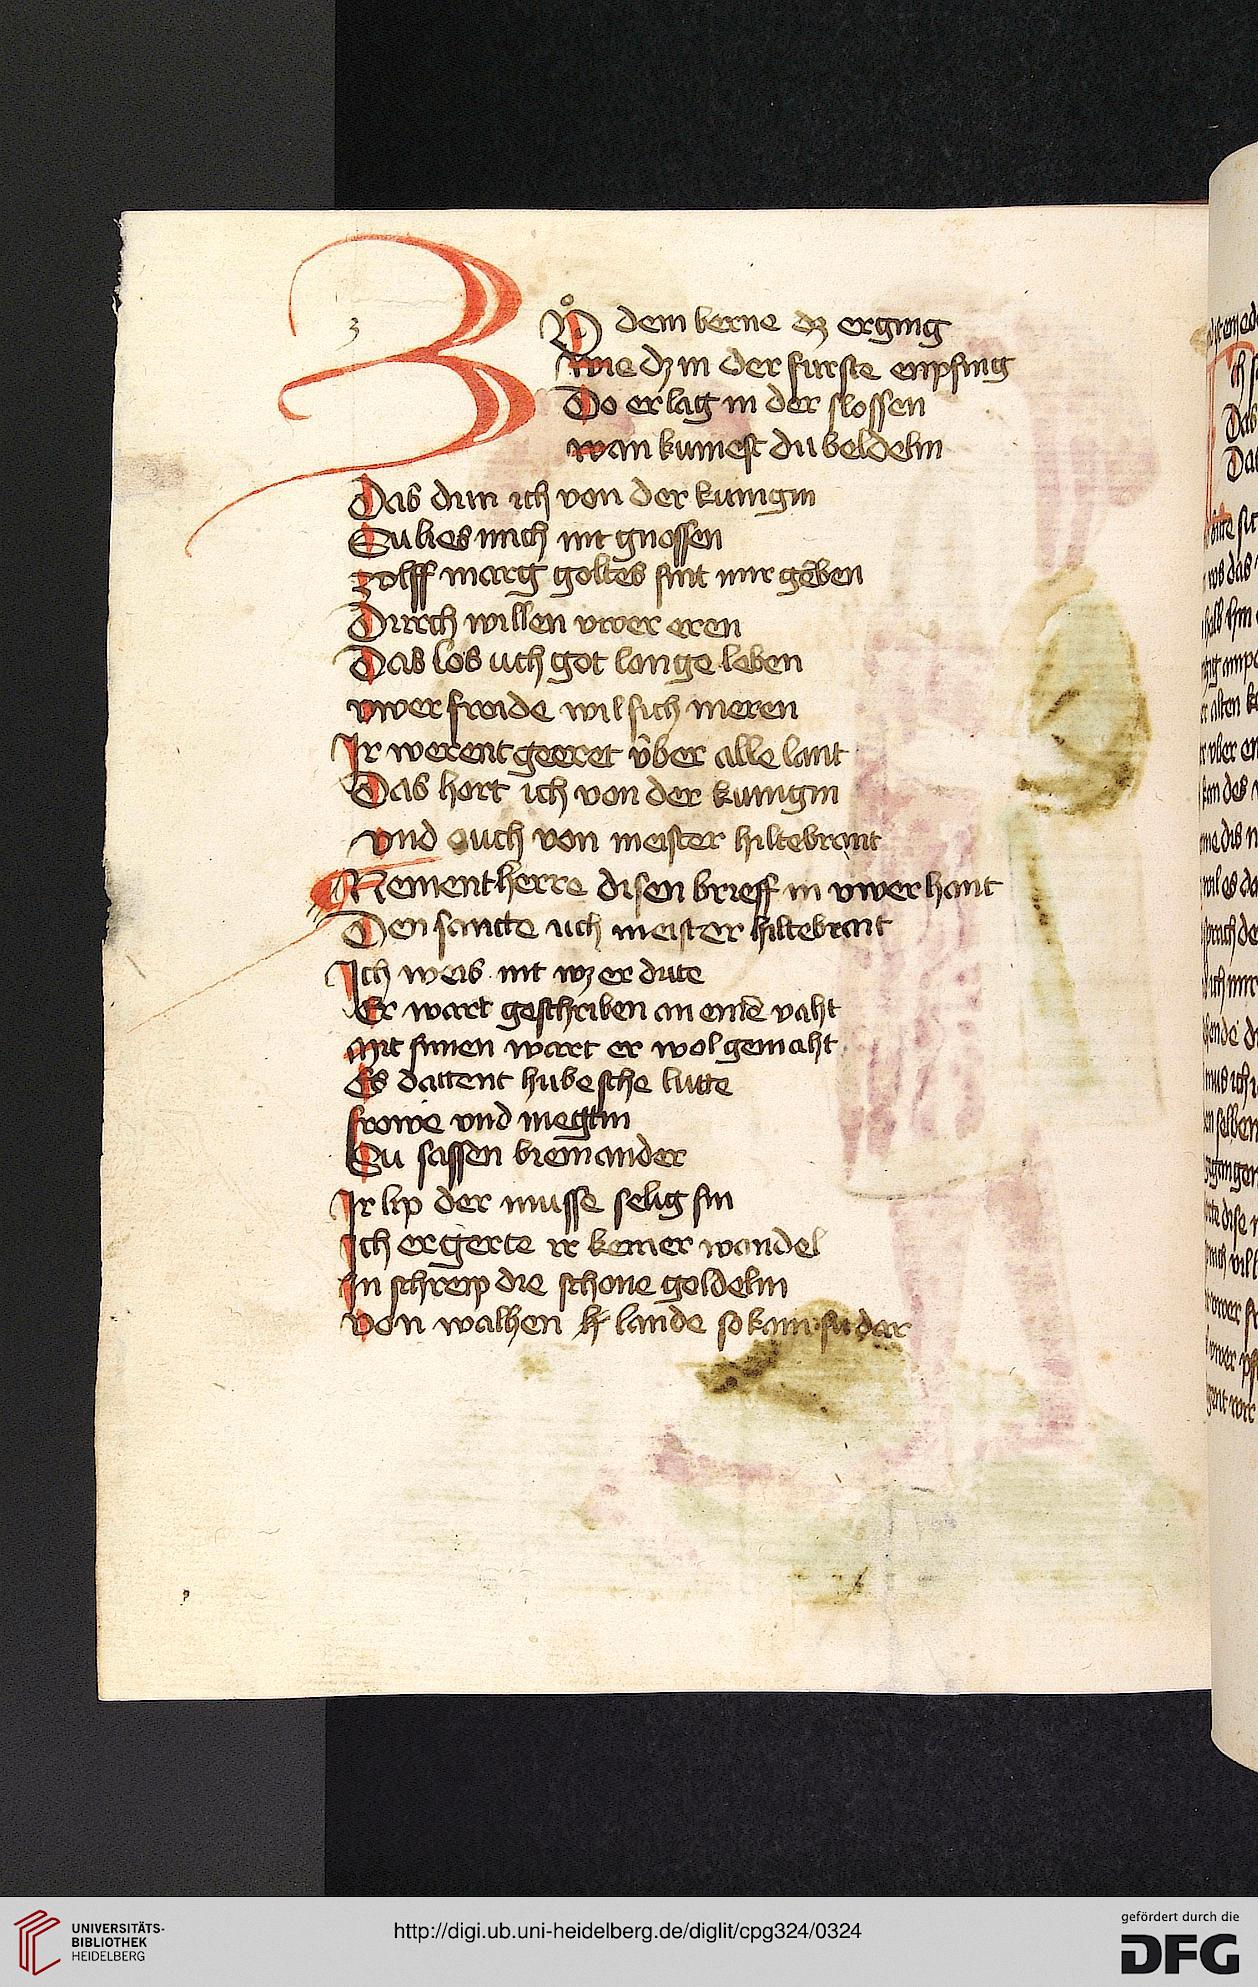 3
Zů dem berne dz erging
wie dz in der furste enpfing
Do er lag in der slossen
wan kumest du beldelin
Das dun ich von der kunigin
Su lies mich nit gnossen
zolff marg goltes sint mir gēben
Durch willen uwer eren
Das los uch got lange leben
uwer froide wil sich meren
Ir werent geeret über alle lant
Das hort ich von der kunigin
vnd ouch von meister hiltebrant
Nement herre disen brieff in uwer hant
Den sancte uch meister hiltebrant
Ich weis nit wz er dute
Er wart geschriben an einē naht
Mit sinnen wart er wol gemaht
Es dattent hubesche lutte
frowe vnd megtin
Su sassen bieinander
Ir lip der musse selig sin
Ich ergerte ir keiner wandel
In schreip die schone goldelin
von walhen lande so kam sit dar
UNIVERSITÄTS-
BIBLIOTHEK
HEIDELBERG
http://digi.ub.uni-heidelberg.de/diglit/cpg324/0324
gefördert durch die
DFG